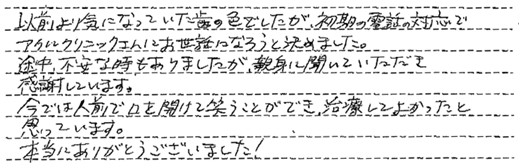 以前より気になっていた歯の色でしたが、初期の電話の対応で
アカルクリニックさんにお世話になろうと決めました。
途中、不安な時もありましたが、親身に聞いていただき
感謝しています。
今では人前で口を開けて笑うことができ、治療してよかったと
思っています。
本当にありがとうございました!